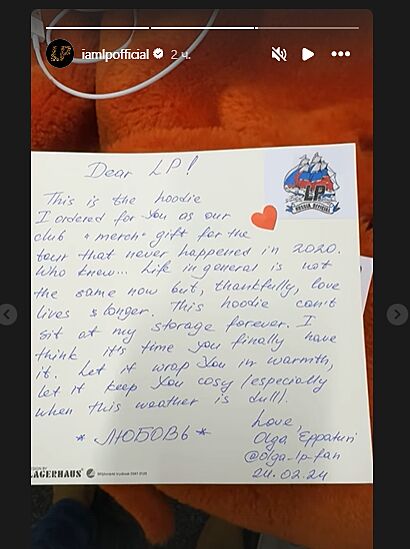 iamlpofficial 2 ч.
Dear LP!
LP
RUSSIA OFFICIAL
This is the hoodie
I ordered for You as our
club "merch" gift for the
tour that never happened in 2020.
Who knew... Life in general is not
the same now but, thankfully, love
lives longer. This hoodie can't
sit at my storage forever. I
think it's time you finally have
it. Let it wrap You in warmth,
let it keep You cosy (especially
when this weather is dull).
* ЛЮБОВЬ *
Love,
Olga Eppaturi
@olga_lp_fan
24.02.24
LAGERHAUS